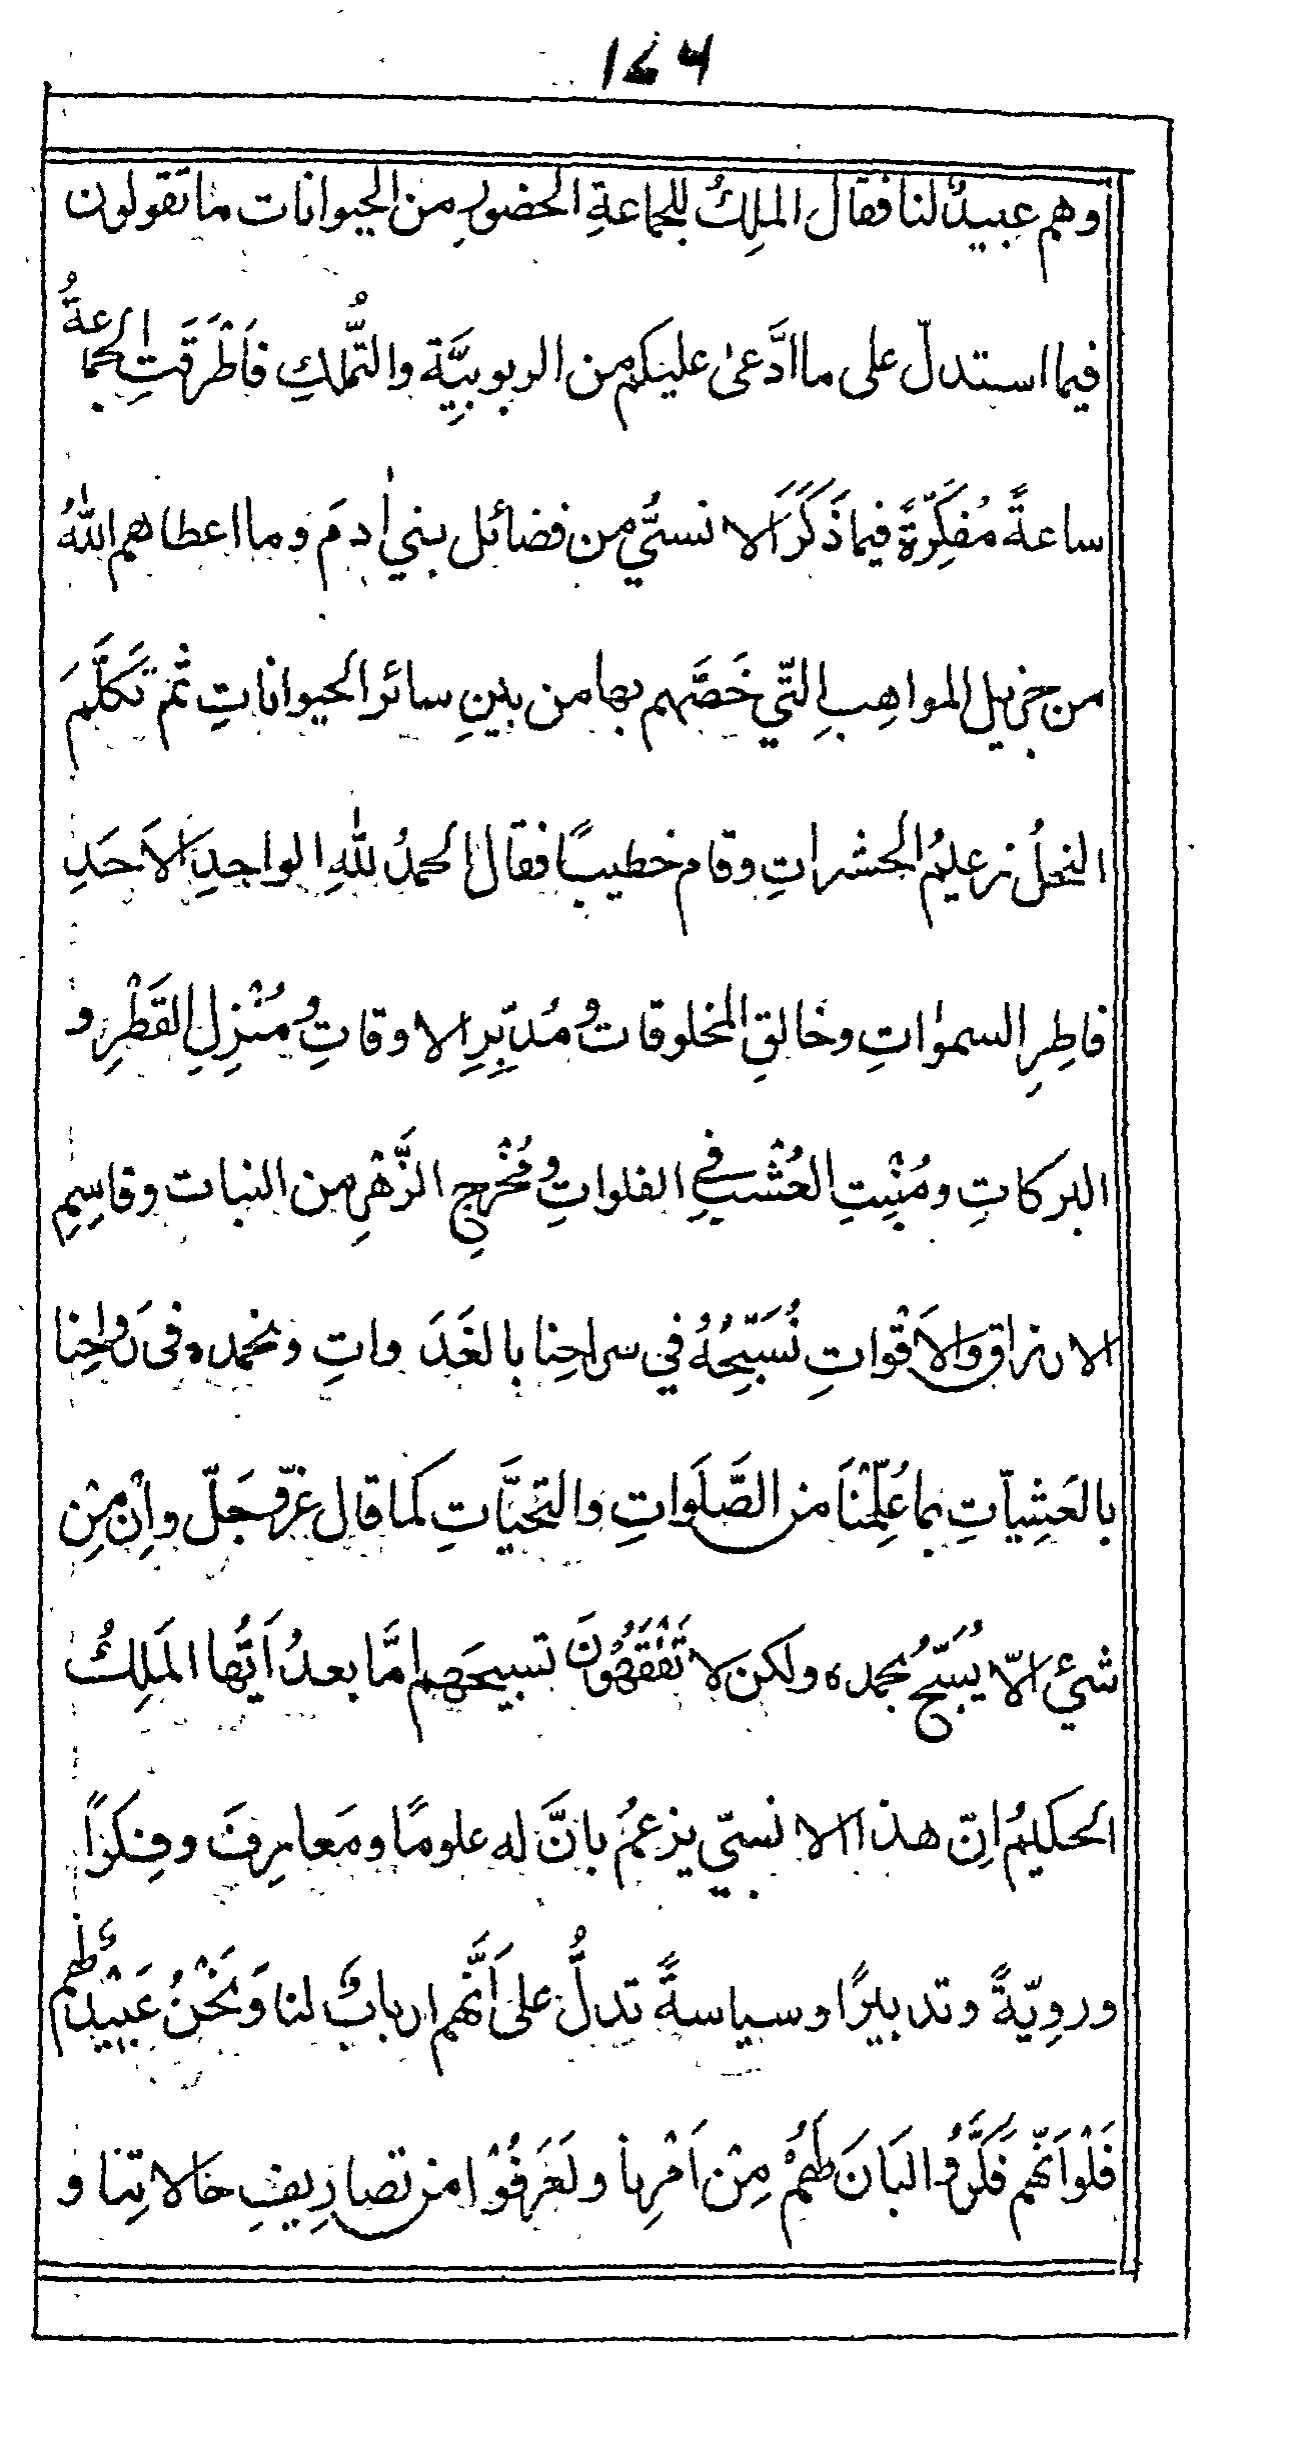 ١٧٦
وهم عبيدٌ لنا فقال الملِكُ للجماعةِ الحضورِ من الحيوانات ما تقولون
فيما استدلّ على ما ادَّعىٰ عليكم من الربوبيَّة والتُّملكِ فَاَطْرَقَتِ الجماعةُ
ساعةً مُفكِّرةً فيما ذَكَرَ الانسيُّ من فضائل بني اٰدمَ وما اعطاهم اللهُ
من جزيل المواهِبِ التّي خَصَّهم بها من بينِ سائر الحيواناتِ ثم تَكلَّمَ
النحلُ زعيمُ الحشراتِ وقام خطيبًا فقال الحمدُ للهِ الواحِدِ الاَحَدِ
فاطِرِ السمٰواتِ وخالقِ المخلوقات ومُدبِّرِ الاوقاتِ ومُنْزِلِ القَطْرِ و
البركاتِ ومُنْبِتِ العُشْبِ في الفلواتِ ومُخْرِجِ الزَّهْرِ من النبات وقاسِمِ
الارزاق والاَقْواتِ نُسَبِّحُهُ في سراحِنا بالغَدَواتِ ونحمده فى رَواحِنا
بالعَشِيّاتِ بما عُلِّمْنَا من الصَّلَواتِ والتحيَّاتِ كما قال عزّ وجَلّ وانْ مِنْ
شئ الّا يُسَبِّحُ بحمده ولكن لا تَفْقَهُونَ تسبيحَهم امَّا بعدُ اَيُّها المَلِكُ
الحكيمُ اِنّ هذا الانسيّ يزعمُ بانَّ له علومًا ومَعارِفَ وفِكرًا
ورويّةً وتدبيرًا وسياسةً تدلُّ على اَنَّهم اربابٌ لنا وَنَحْنُ عَبِيْدٌ لهم
فَلَوْ اَنّهم فَكَّرُوا لَبَانَ لَهُمْ مِنْ اَمْرِنا ولَعَرَفُوْا من تصارِيفِ حَالاتِنا و